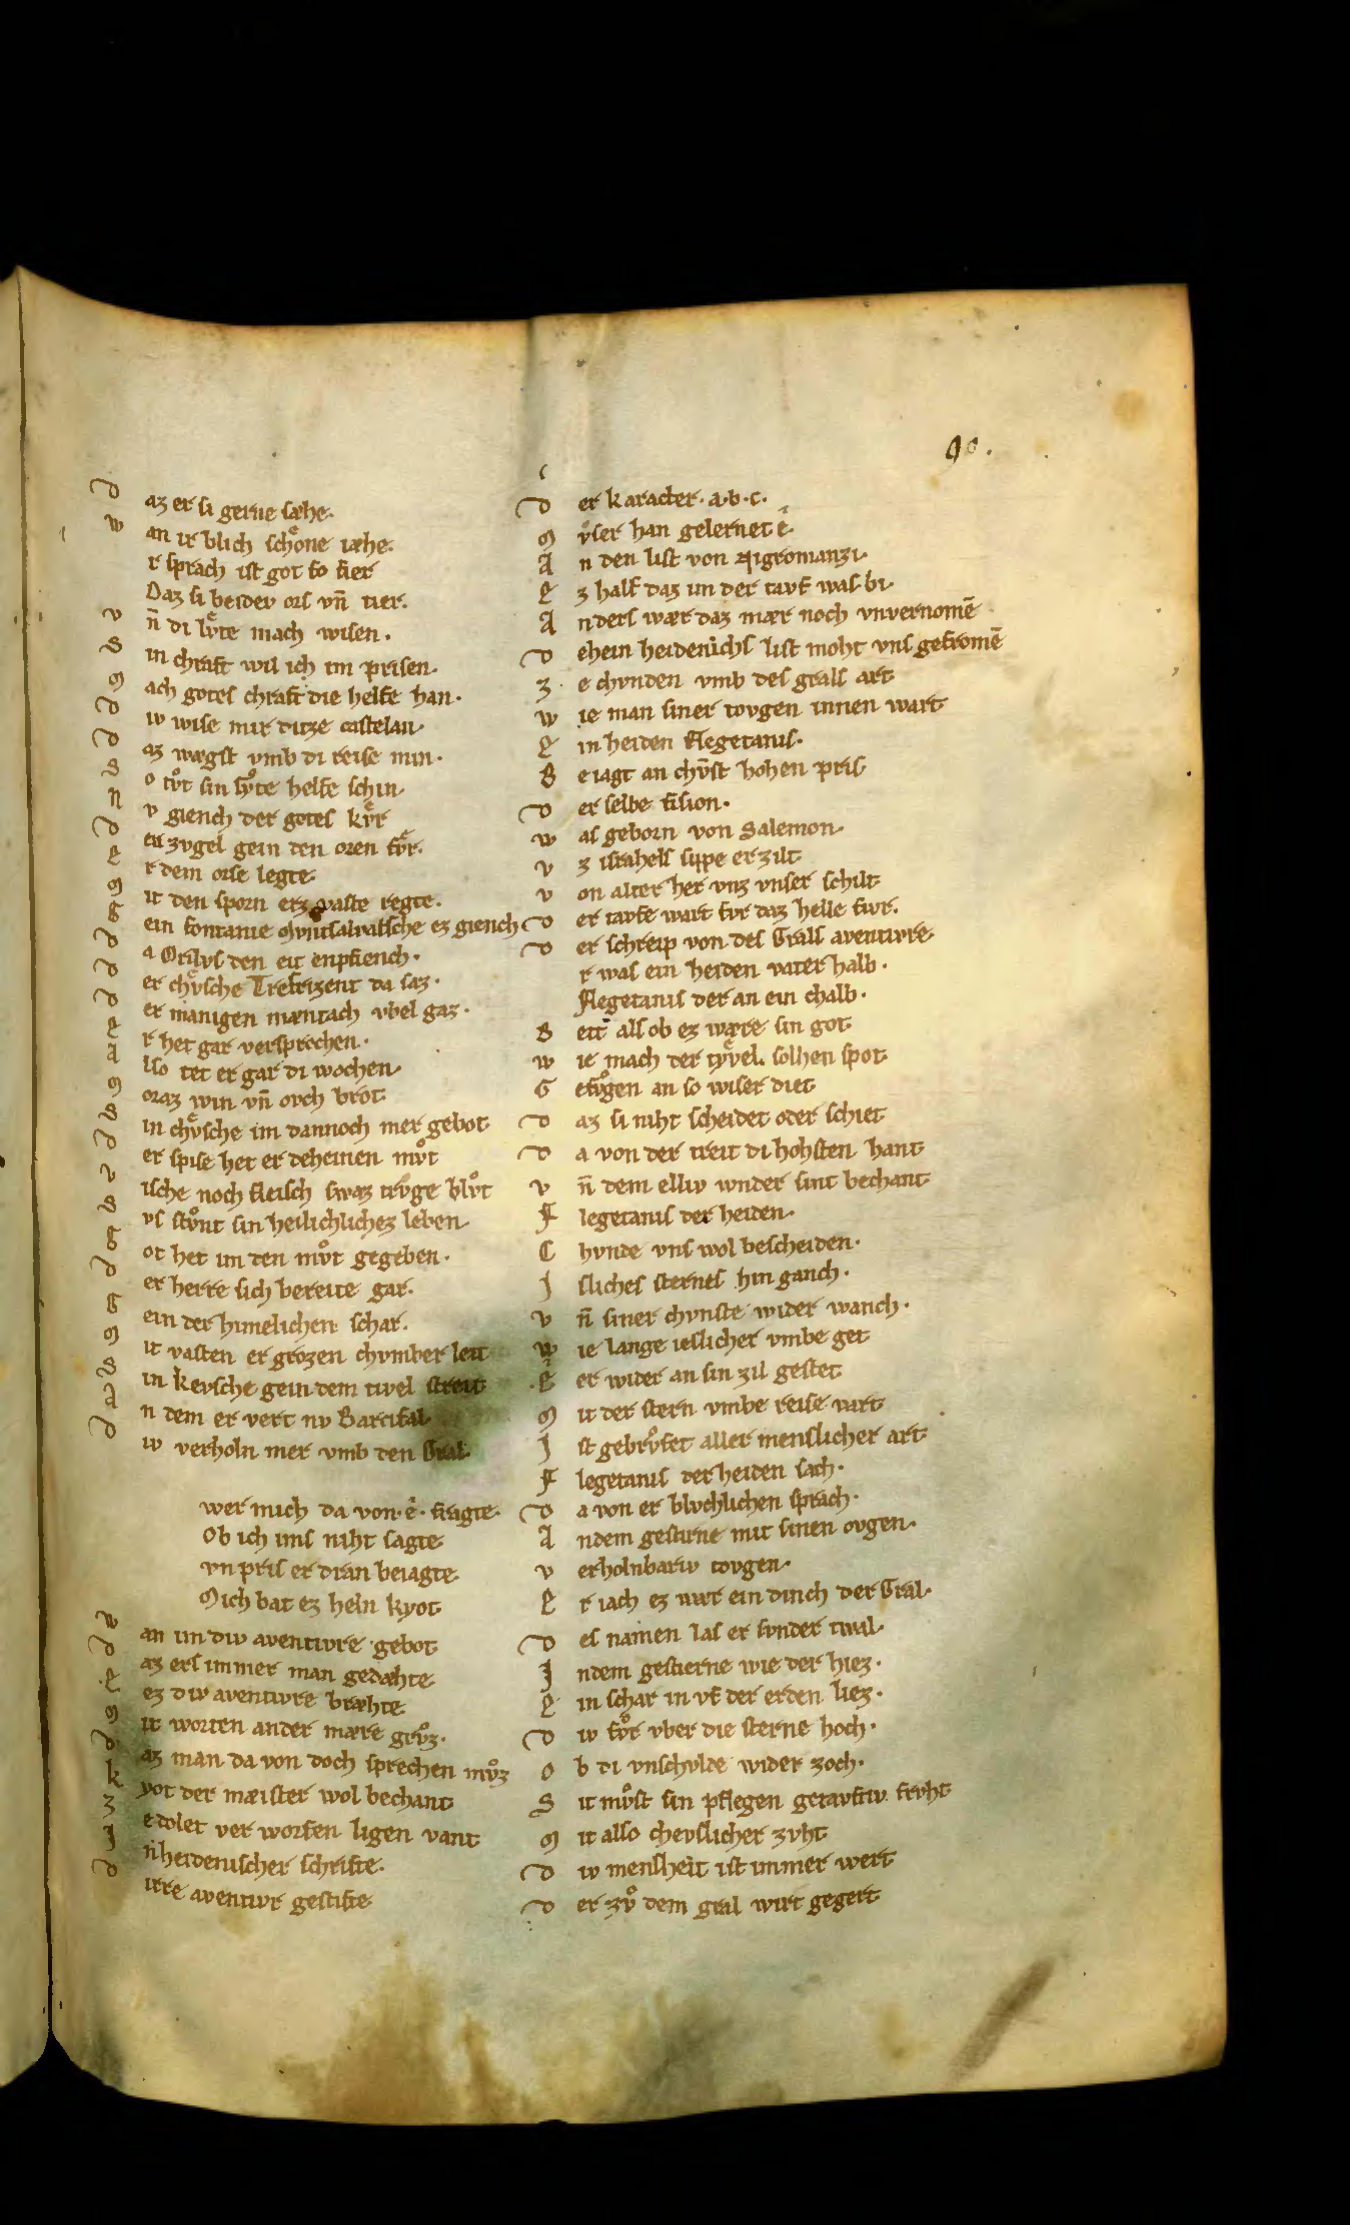 90.
D az er si gerne sæhe.
W an ir blich schoͤne iæhe.
r sprach ist got so fier
Daz si beidev ors vn̄ tier.
V n̄ di lvͤte mach wisen.
S in chraft wil ich im prisen.
M ach gotes chraft die helfe han.
D iv wise mir ditze castelan.
D az wægst vmb di reise min.
S o tvͦt sin gvͦte helfe schin.
N v giench der gotes kvͤr
D en zvgel gein den oren fvͤr.
E r dem orse legte.
M it den sporn erz vaste regte.
G ein fontanie Mvntsalvatsche ez giench
D a Orilvs den eit enpfiench.
D er chvͤsche Trefrizent da saz.
D er manigen mæntach vbel gaz.
E r het gar versprochen.
A lso tet er gar di wochen.
M oraz win vn̄ ovch brot
S in chvͤsche im dannoch mer gebot
D er spise het er deheinen mvͦt
V ische noch fleisch swaz trvͦge blvͦt
S vs stvͦnt sin heilichlichez leben.
G ot het im den mvͦt gegeben.
D er herre sich bereite gar.
G ein der himelichen schar.
M it vasten er grozen chvmber leit
S in kevsche gein dem tivel streit
A n dem er vert nv Barcifal
D iv verholn mer vmb den Gral.
wer mich da von .ê. fragte.
Ob ich ims niht sagte
vn pris er dran beiagte.
Mich bat ez heln kyot
W an im div aventivre gebot
D az ers immer man gedæhte
E ez div aventivre bræhte
M it worten ander mære grvͦz.
D az man da von doch sprechen mvͦz
K yot der mæister wol bechant
Z e dolet ver worfen ligen vant
I n heidenischer schrifte.
D irre aventivr gestifte
D er karacter. a.b.c.
M vͦser han gelernet ê.
A n den list von Nigromanzi.
E z half daz im der tavf was bi.
A nders wær daz mær noch vnvernomē
D ehein heidenichs list moht vns gefromē
Z e chvnden vmb des grals art
W ie man siner tovgen innen wart
E in heiden Flegetanis.
B eiagt an chvnst hohen pris
D er selbe fision.
W as geborn von Salemon.
V z israhels sippe erzilt
V on alter her vnz vnser schilt
D er tavfe wart fvr daz helle fivr.
D er schreip von des Grals aventivre.
r was ein heiden vater halb.
Flegetanis der an ein chalb.
B ett als ob ez wære sin got
W ie mach der tyͤvel solhen spot
G efvͦgen an so wiser diet
D az si niht scheidet oder schiet
D a von der treit di hohsten hant
V n̄ dem elliv wnder sint bechant
F legetanis der heiden.
C hvnde vns wol bescheiden.
I sliches sternes hin ganch.
V n̄ siner chvnste wider wanch.
W ie lange ieslicher vmbe get
E er wider an sin zil gestet
M it der stern vmbe reise vart
I st gebrvͦfet aller menslicher art
F legetanis der heiden sach.
D a von er blvchlichen sprach.
A ndem gestirne mit sinen ovgen.
V erholnbariv tovgen.
E r iach ez wær ein dinch der Gral.
D es namen las er svnder twal.
I ndem gestierne wie der hiez.
E in schar in vf der erden liez.
D iv fvͦr vber die sterne hoch.
O b di vnschvlde wider zoch.
S it mvͦst sin pflegen getavftiv frvht
M it also chevslicher zvht
D iv mensheit ist immer wert
D er zvͦ dem gral wirt gegert